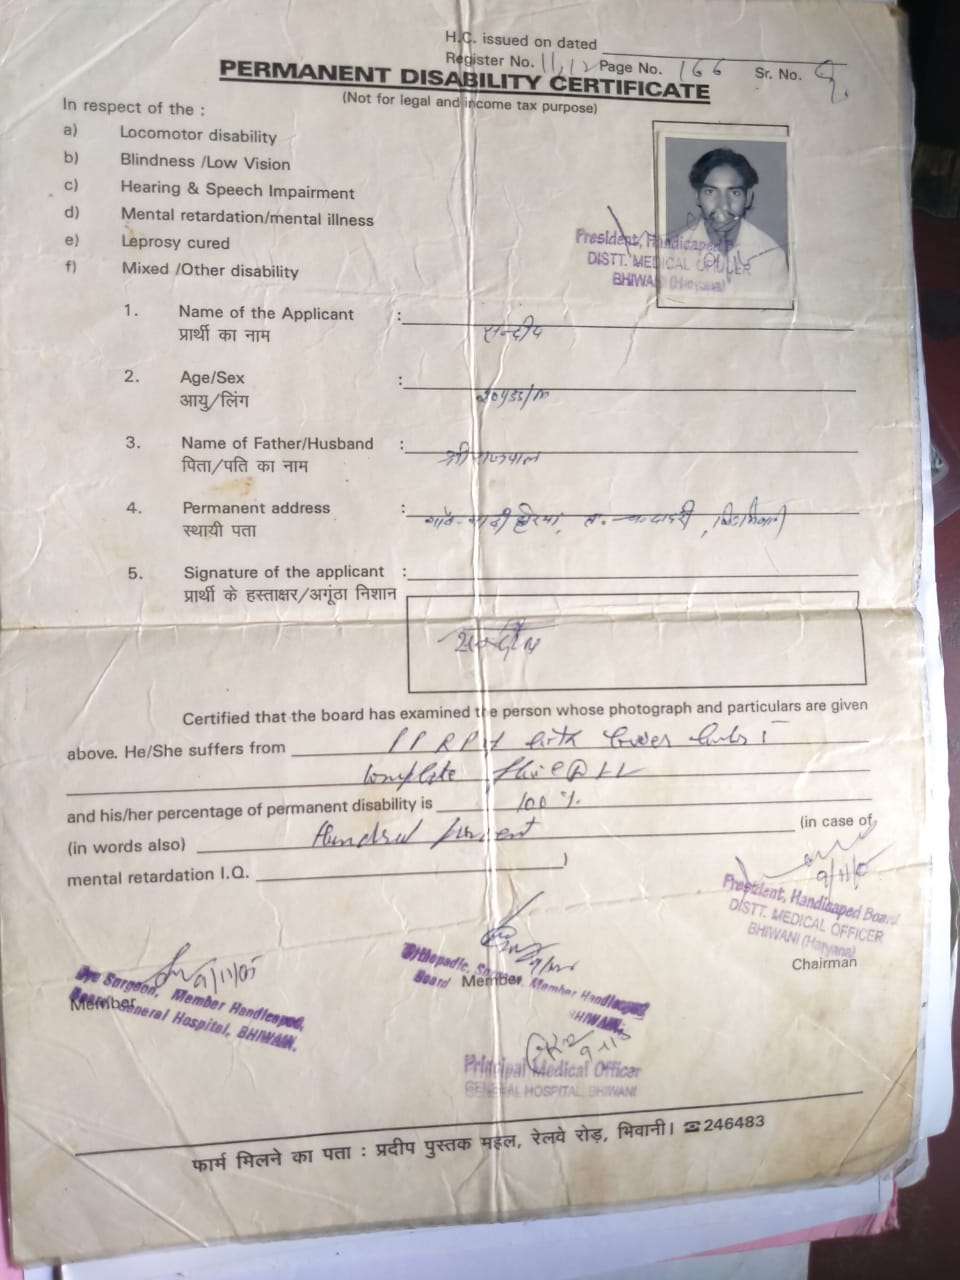 H.C. issued on dated
Register No. 11,12 Page No. 166 Sr. No.
PERMANENT DISABILITY CERTIFICATE
(Not for legal and income tax purpose)
In respect of the :
a) Locomotor disability
b) Blindness /Low Vision
c) Hearing & Speech Impairment
d) Mental retardation/mental illness
e) Leprosy cured
f) Mixed /Other disability
President, Handicaped
DISTT. MEDICAL OFFICER
BHIWANI (Haryana)
1. Name of the Applicant : सन्दीप
प्रार्थी का नाम
2. Age/Sex :
आयु/लिंग
3. Name of Father/Husband : श्री राजपाल
पिता/पति का नाम
4. Permanent address : गाँव
स्थायी पता
5. Signature of the applicant :
प्रार्थी के हस्ताक्षर/अगूंठा निशान
सन्दीप
Certified that the board has examined the person whose photograph and particulars are given
above. He/She suffers from P P R P
Complete
and his/her percentage of permanent disability is 100 %
(in words also) Hundred percent (in case of
mental retardation I.Q. )
9/11/05
President, Handicaped Board
DISTT. MEDICAL OFFICER
BHIWANI (Haryana)
Chairman
9/11/05
Eye Surgeon, Member Handicaped,
Board General Hospital, BHIWANI.
Member
Orthopadic, Surgeon, Member Handicaped
Board BHIWANI.
Member
Principal Medical Officer
GENERAL HOSPITAL, BHIWANI
फार्म मिलने का पता : प्रदीप पुस्तक महल, रेलवे रोड़, भिवानी। ☎246483